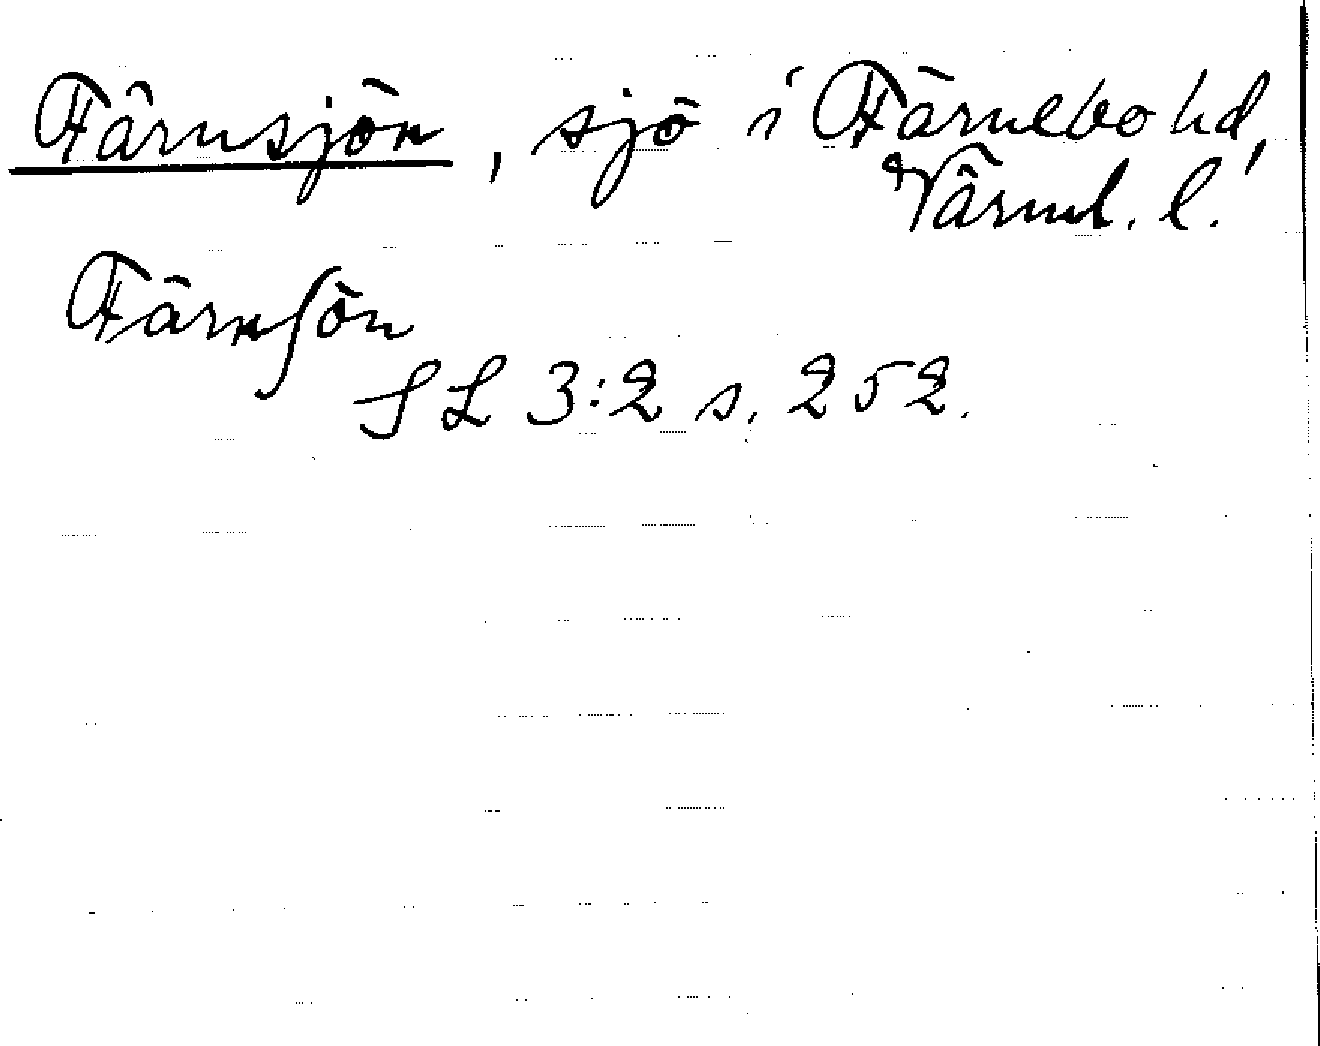 Färnsjön, sjö i Färnebo hd,
Värml. l.
Färnſön
SL 3:2 s. 252.